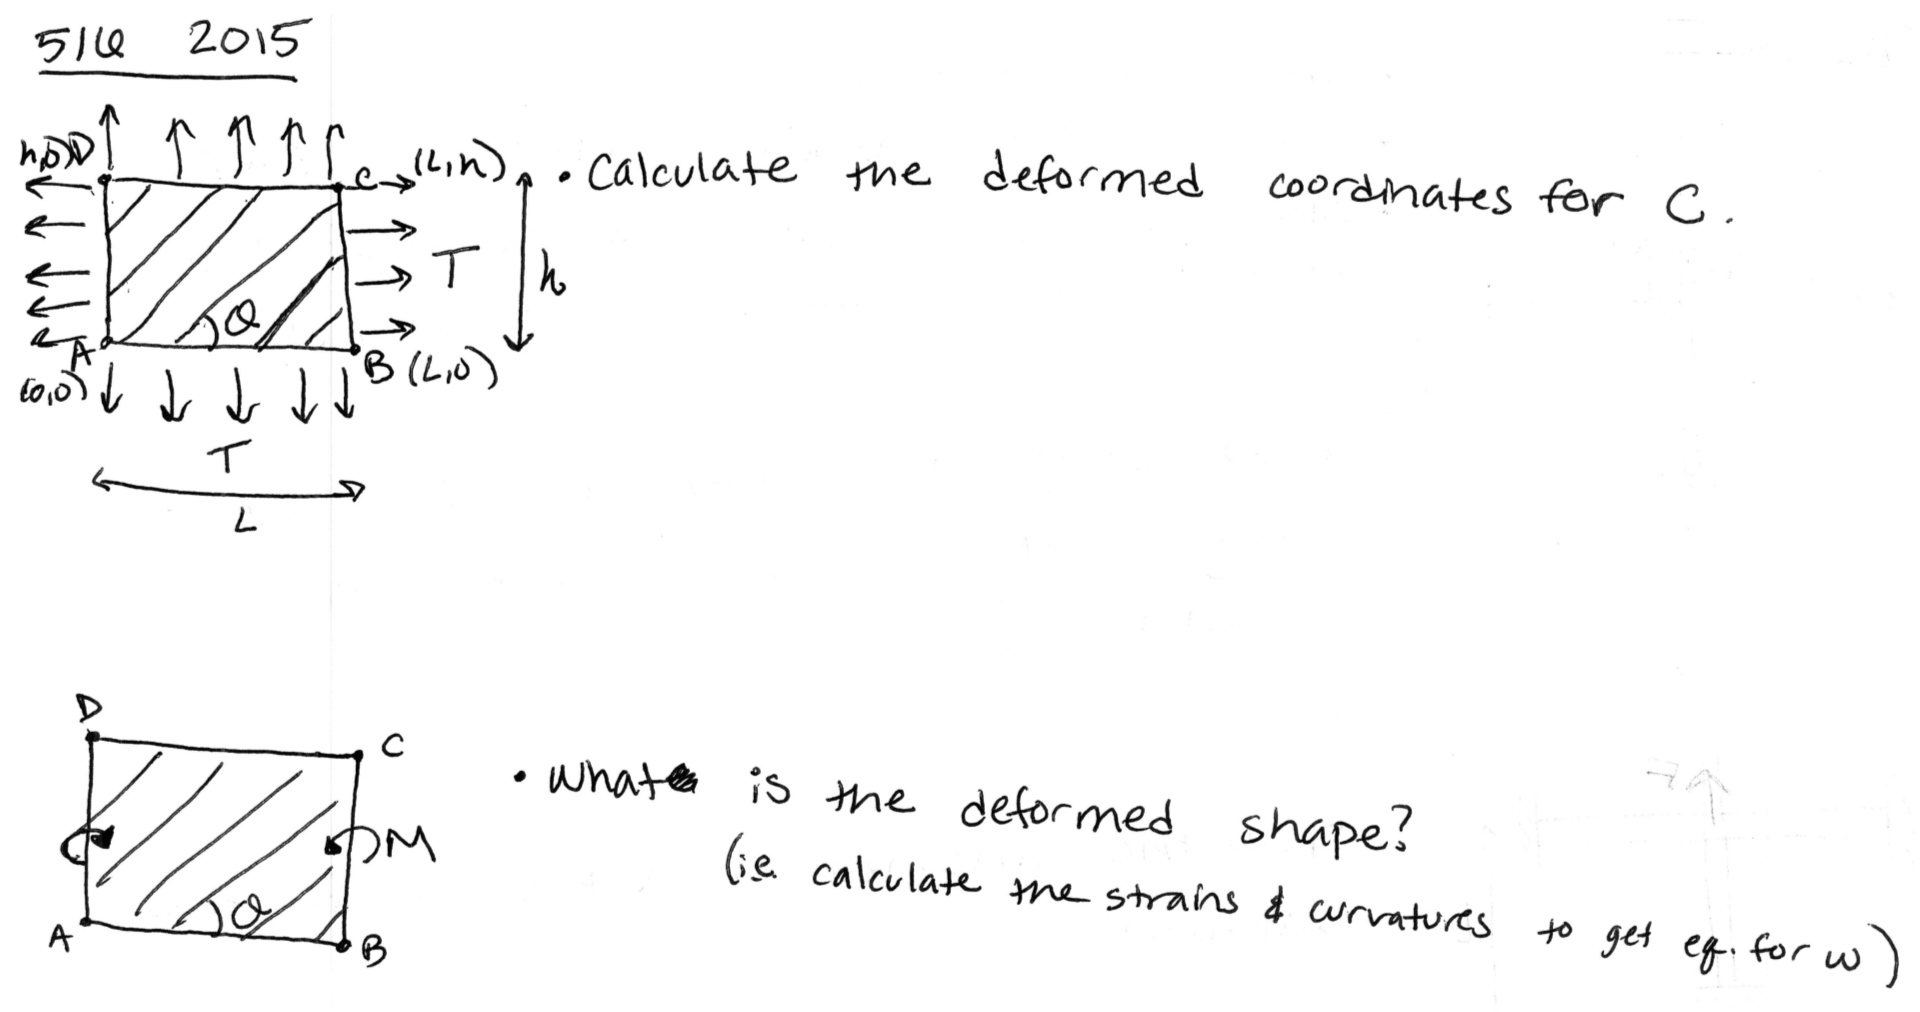 516 2015
h,0) D
C (L,h)
• Calculate the deformed coordinates for C.
T
h
θ
A
(0,0)
B (L,0)
T
L
D
C
• what is the deformed shape?
(i.e. calculate the strains & curvatures to get eq. for w)
M
θ
A
B